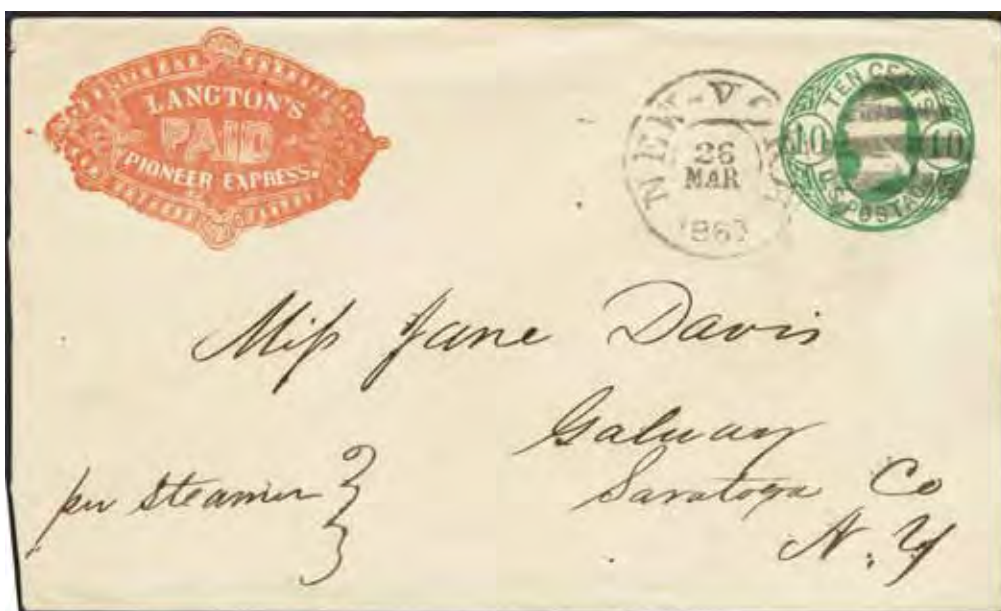 LANGTON'S
PAID
PIONEER EXPRESS.
NEW-YORK
26
MAR
TEN CENTS
10 10
U.S. POSTAGE
Miſs Jane Davis
Galway
Saratoga Co
N.Y
per steamer